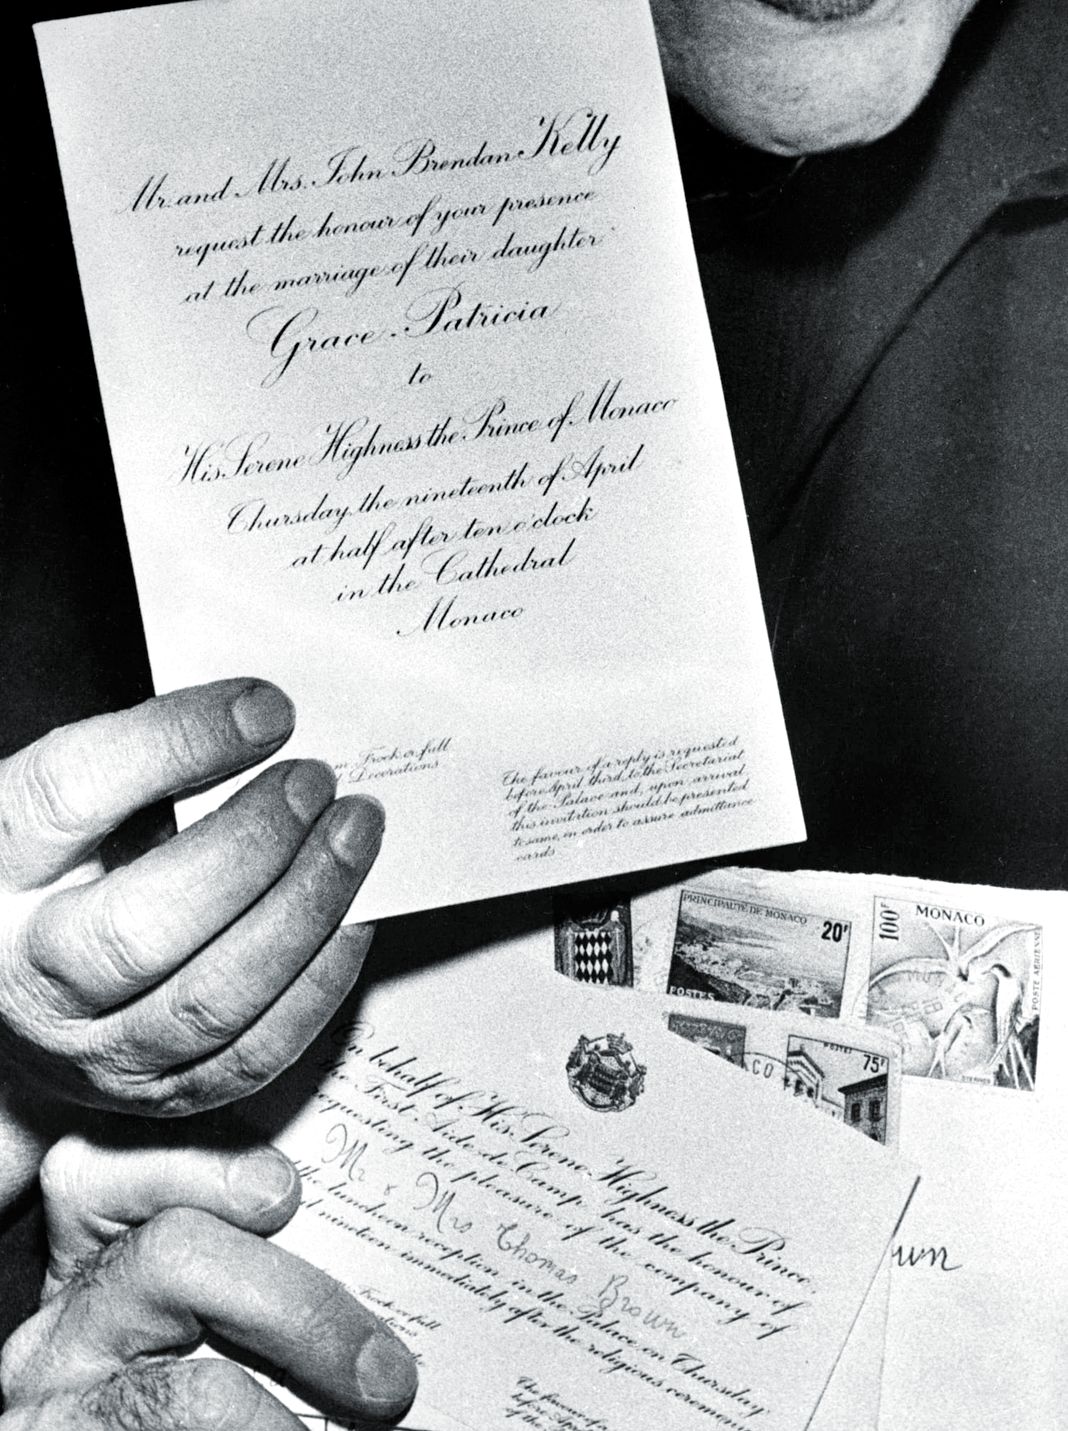 Mr. and Mrs. John Brendan Kelly
request the honour of your presence
at the marriage of their daughter
Grace Patricia
to
His Serene Highness the Prince of Monaco
Thursday, the nineteenth of April
at half after ten o'clock
in the Cathedral
Monaco
Frock or full
Decorations
The favour of a reply is requested
before April third, to the Secretariat
of the Palace and, upon arrival,
this invitation should be presented
to same, in order to assure admittance
cards
PRINCIPAUTÉ DE MONACO
20F
POSTES
100F
MONACO
POSTE AÉRIENNE
POSTES
75F
On behalf of His Serene Highness the Prince,
the First Aide-de-Camp has the honour of
requesting the pleasure of the company of
Mr & Mrs Thomas Brown
the luncheon reception in the Palace on Thursday
nineteen immediately after the religious ceremony
Frock or full
The favour of a
before April
of the